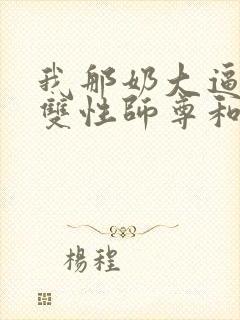 我那奶大逼
雙性師尊和
楊程